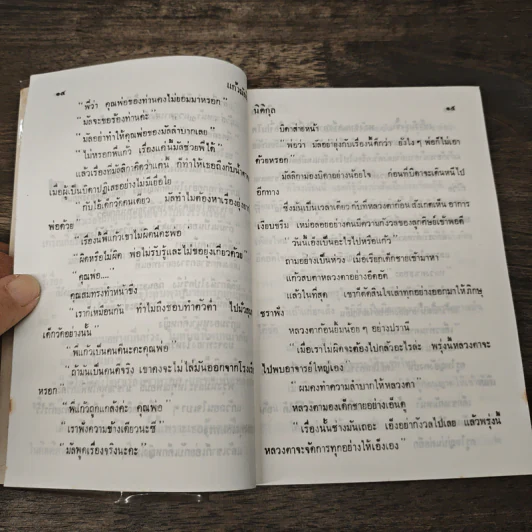 ๑๔
แก้วม
"พี่ว่า คุณพ่อของท่านคงไม่ยอมมาหรอก"
"มัลจะขอร้องท่านค่ะ"
"มัลอย่าทำให้คุณพ่อของมัลลำบากเลย"
"ไม่หรอกพี่แก้ว เรื่องแค่นี้มัลช่วยพี่ได้"
แล้วเรื่องที่มัลลิกาคิดว่าแค่นั้น ก็ทำให้เธอถึงกับน้ำตา
เมื่อผู้เป็นบิดาปฏิเสธอย่างไม่มีเยื่อใย
"กับไอ้เด็กวัดคนเดียว มัลทำไมต้องหาเรื่องยุ่งยาก
พ่อด้วย"
"เรื่องนี้พี่แก้วเขาไม่ผิดนี่คะพ่อ"
"ผิดหรือไม่ผิด พ่อไม่รับรู้และไม่ขอยุ่งเกี่ยวด้วย"
"คุณพ่อ...."
คุณสมทรงทำหน้าขึง
"เราก็เหมือนกัน ทำไมถึงชอบทำตัวต่ำ ไปมั่ว
เด็กวัดอย่างนั้น"
"พี่แก้วเป็นคนดีนะคะคุณพ่อ"
"ถ้ามันเป็นคนดีจริง เขาคงจะไม่ไล่มันออกจากโรงเรียน
หรอก"
"พี่แก้วถูกแกล้งค่ะ คุณพ่อ"
"เราฟังความข้างเดียวน่ะซี"
"มัลพูดเรื่องจริงนะคะ"
นิติกุล
๑๕
บิดาส่ายหน้า
"พ่อว่า มัลอย่ายุ่งกับเรื่องนี้ดีกว่า ยังไง ๆ พ่อก็ไม่เอา
ด้วยหรอก"
มัลลิกามองบิดาอย่างน้อยใจ ก่อนที่บิดาจะเดินหนีไป
อีกทาง
ซึ่งมันเป็นเวลาเดียวกับที่หลวงตาก้อน สังเกตเห็น อาการ
เงียบขรึม เหม่อลอยอย่างคนมีความกังวลของลูกศิษย์เข้าพอดี
"วันนี้เอ็งเป็นอะไรไปหรือแก้ว"
ถามอย่างเป็นห่วง เมื่อเรียกเด็กชายเข้ามาหา
แก้วสบตาหลวงตาอย่างอึดอัด
แล้วในที่สุด เขาก็ตัดสินใจเล่าทุกอย่างออกมาให้ภิกษุ
ชราฟัง
หลวงตาก้อนยิ้มน้อย ๆ อย่างปรานี
"เมื่อเราไม่ผิดจะต้องไปกลัวอะไรล่ะ พรุ่งนี้หลวงตาจะ
ไปพบอาจารย์ใหญ่เอง"
"ผมคงทำความลำบากให้หลวงตา"
หลวงตามองเด็กชายอย่างเอ็นดู
"เรื่องนั้นช่างมันเถอะ เอ็งอย่ากังวลไปเลย แล้วพรุ่งนี้
หลวงตาจะจัดการทุกอย่างให้เอ็งเอง"